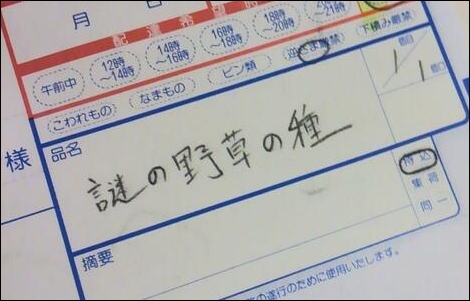 月 日
配達希望時
午前中
12時〜14時
14時〜16時
16時〜18時
18時〜20時
〜21時
こわれもの
なまもの
ビン類
逆さま厳禁
下積み厳禁
様
品名
謎の野草の種
1
個口
1
個口
持込
集荷
同一
摘要
の遂行のために使用いたします。